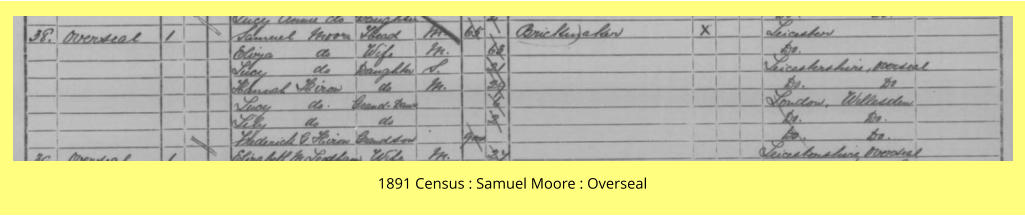 Lucy Annie do Daughter
38. Overseal 1 Samuel Moore Head M. 65 Brickmaker X Leicester
Eliza do Wife M. 63 Do.
Lucy do Daughter S. 21 Leicestershire, Overseal
Hannah Hiron do M. 29 Do. Do
Lucy do. Grand-Daur 6 London, Willesden
Lily do do 3 Do. Do.
Frederick G Hiron Grandson 9m Do. Do.
Overseal 1 Elizabeth M Wife M. 24 Leicestershire, Overseal
1891 Census : Samuel Moore : Overseal